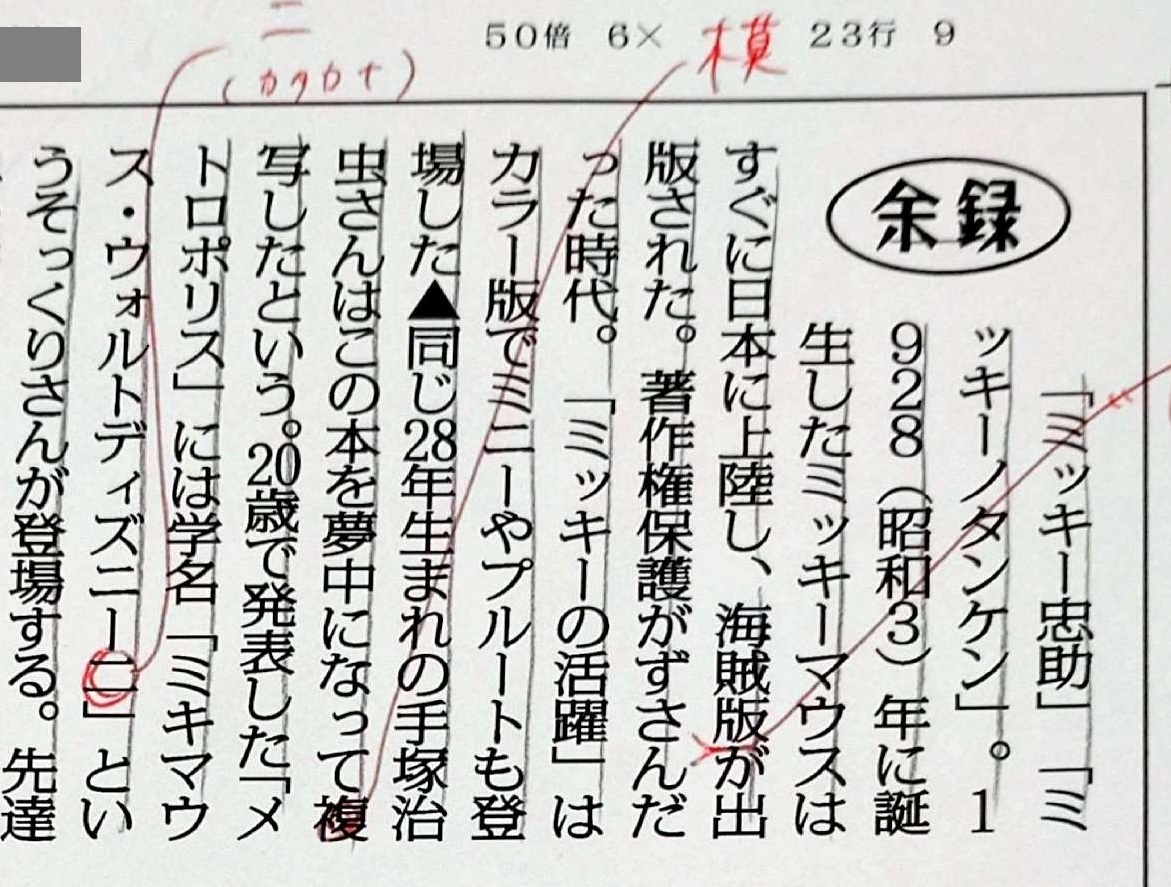 ニ
(カタカナ)
50倍 6×
模
23行 9
余録
「ミッキー忠助」「ミ
ッキーノタンケン」。1
928(昭和3)年に誕
生したミッキーマウスは
すぐに日本に上陸し、海賊版が出
版された。著作権保護がずさんだ
った時代。「ミッキーの活躍」は
カラー版でミニーやプルートも登
場した▲同じ28年生まれの手塚治
虫さんはこの本を夢中になって複
写したという。20歳で発表した「メ
トロポリス」には学名「ミキマウ
ス・ウォルトディズニー二」とい
うそっくりさんが登場する。先達